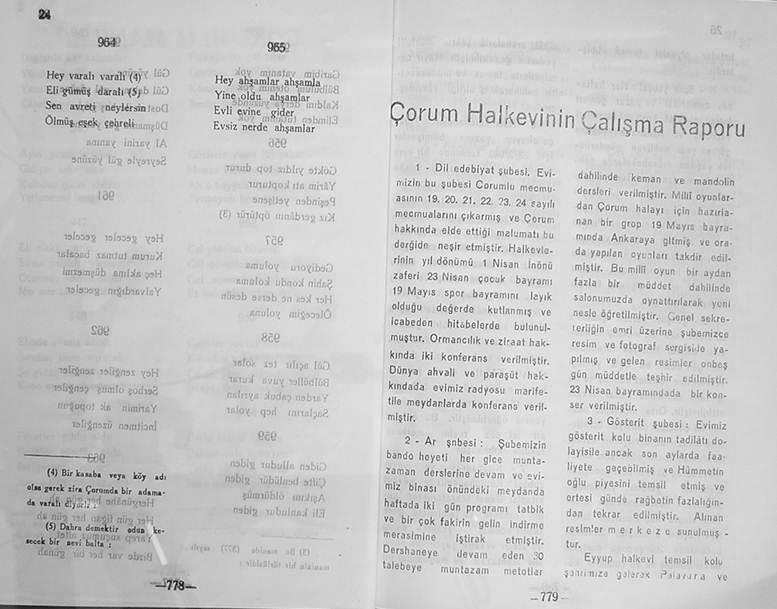 24
964
Hey varalı varalı (4)
Eli gümüş daralı (5)
Sen avreti neylersin
Ölmüş eşek çehreli
965
Hey ahşamlar ahşamla
Yine oldu ahşamlar
Evli evine gider
Evsiz nerde ahşamlar
(4) Bir kasaba veya köy adı
olsa gerek zira Çorumda bir adama-
da varalı diyorlar :
(5) Dahra demektir odun ke-
secek bir nevi balta :
—778—
Çorum Halkevinin Çalışma Raporu
1 - Dil edebiyat şubesi. Evi-
mizin bu şubesi Çorumlu mecmu-
asının 19. 20. 21. 22. 23. 24 sayılı
mecmualarını çıkarmış ve Çorum
hakkında elde ettiği malumatı bu
derğide neşir etmiştir. Halkevle-
rinin yıl dönümü 1 Nisan İnönü
zaferi 23 Nisan çocuk bayramı
19 Mayıs spor bayramını layık
olduğu değerde kutlanmış ve
icabeden hitabelerde bulunul-
muştur. Ormancılık ve ziraat hak-
kında iki konferans verilmiştir.
Dünya ahvali ve paraşüt hak-
kındada evimiz radyosu marife-
tile meydanlarda konferans veril-
miştir.
2 - Ar şnbesi : Şubemizin
bando heyeti her gice munta-
zaman derslerine devam ve evi-
miz binası önündeki meydanda
haftada iki gün programı tatbik
ve bir çok fakirin gelin indirme
merasimine iştirak etmiştir.
Dershaneye devam eden 30
talebeye muntazam metotlar
dahilinde keman ve mandolin
dersleri verilmiştir. Milli oyunlar-
dan Çorum halayı için hazırla-
nan bir grop 19 Mayıs bayra-
mında Ankaraya gitmiş ve ora-
da yapılan oyunları takdir edil-
miştir. Bu milli oyun bir aydan
fazla bir müddet dahilinde
salonumuzda oynattırılarak yeni
nesle öğretilmiştir. Genel sekre-
terliğin emri üzerine şubemizce
resim ve fotograf sergiside ya-
pılmış ve gelen resimler onbeş
gün müddetle teşhir edilmiştir.
23 Nisan bayramındada bir kon-
ser verilmiştir.
3 - Gösterit şubesi : Evimiz
gösterit kolu binanın tadilâtı do-
layısile ancak son aylarda faa-
liyete geçebilmiş ve Hümmetin
oğlu piyesini temsil etmiş ve
ertesi günde rağbetin fazlalığın-
dan tekrar edilmiştir. Alınan
resimler merkeze sunulmuş -
tur.
Eyyup halkevi temsil kolu
şehrimize gelerek Palavara ve
— 779 —